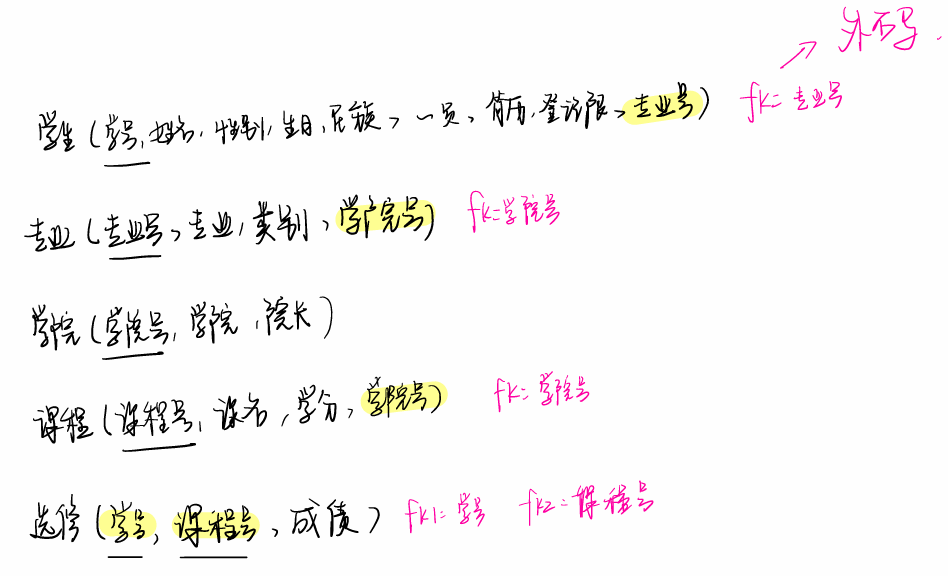 外码
学生(学号,姓名,性别,生日,民族,一员,简历,登记照,专业号) fk=专业号
专业(专业号,专业,类别,学院号) fk=学院号
学院(学院号,学院,院长)
课程(课程号,课名,学分,学院号) fk=学院号
选修(学号,课程号,成绩) fk1=学号 fk2=课程号